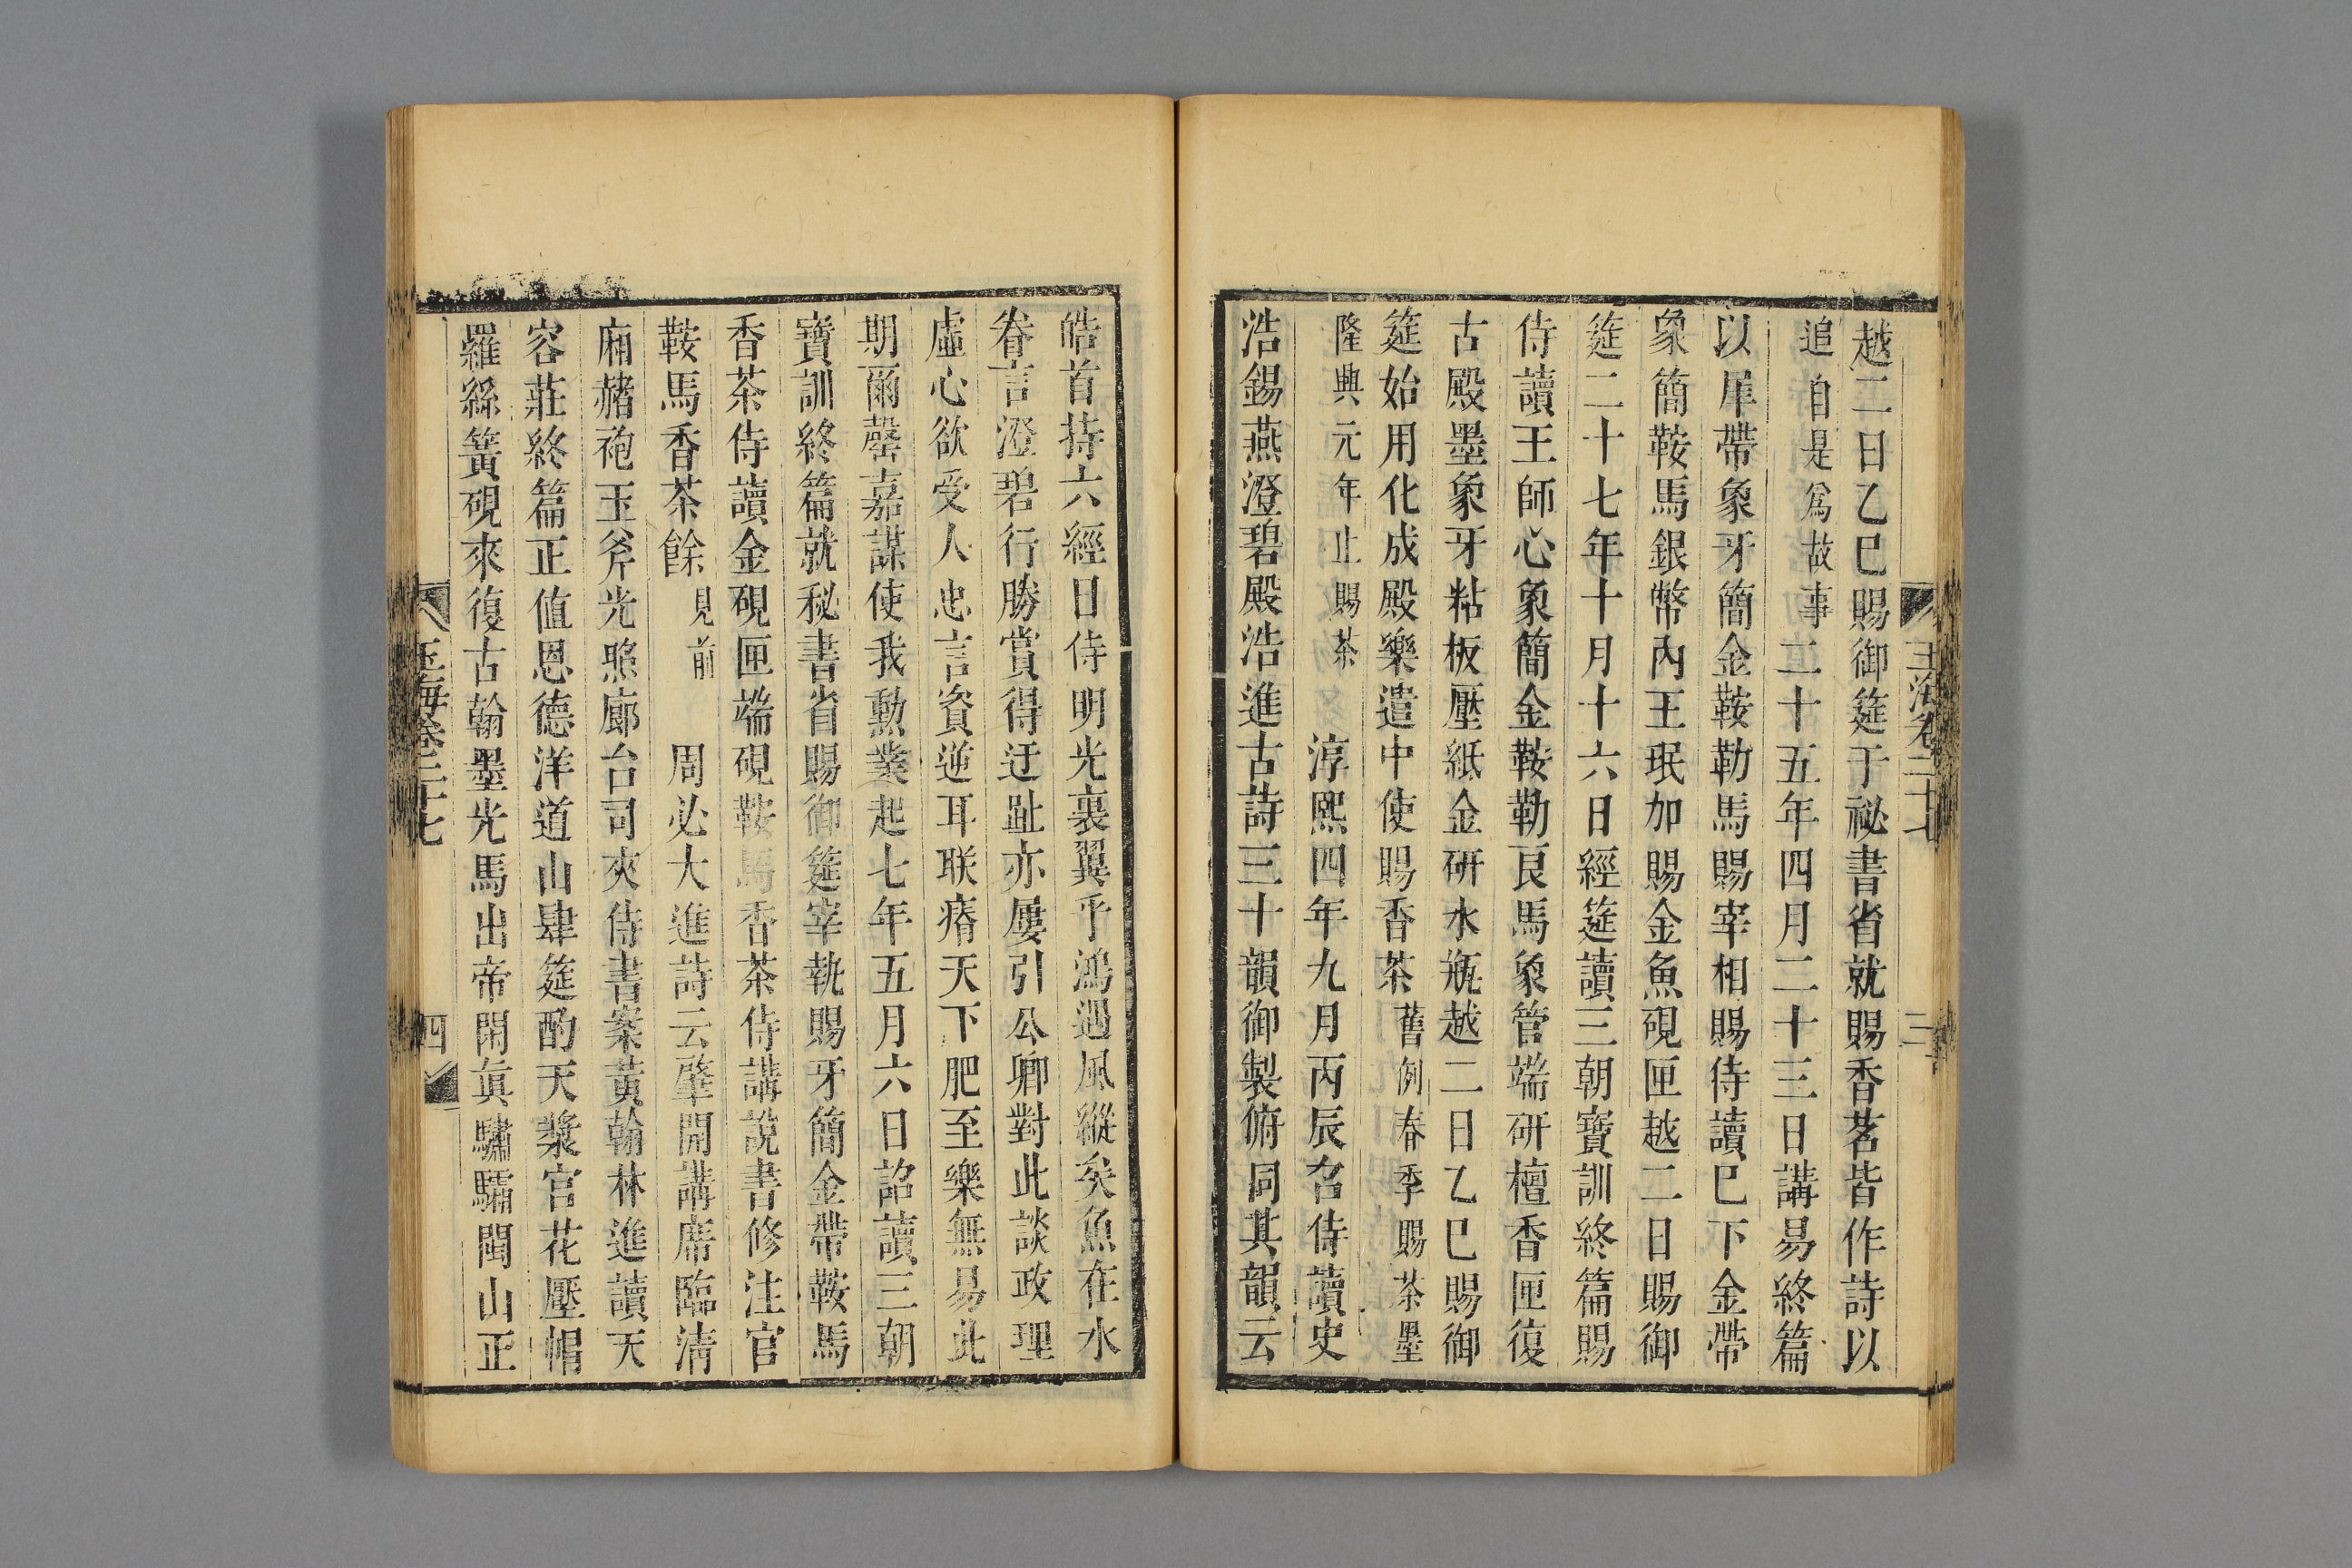 越二日乙巳賜御筵于祕書省就賜香茗皆作詩以
追自是爲故事二十五年四月二十三日講易終篇
以犀帶象牙簡金鞍勒馬賜宰相賜侍讀巳下金帶
象簡鞍馬銀幣內王珉加賜金魚硯匣越二日賜御
筵二十七年十月十六日經筵讀三朝寶訓終篇賜
侍讀王師心象簡金鞍勒良馬象管端研檀香匣復
古殿墨象牙粘板壓紙金研水瓶越二日乙巳賜御
筵始用化成殿樂遣中使賜香茶舊例春季賜茶墨
隆興元年止賜茶 淳熙四年九月丙辰召侍讀史
浩錫燕澄碧殿浩進古詩三十韻御製俯同其韻云
玉海卷二十七
三
皓首持六經日侍明光裏翼乎鴻遇風縱矣魚在水
眷言澄碧行勝賞得迂趾亦屢引公卿對此談政理
虛心欲受人忠言資逆耳朕瘠天下肥至樂無易此
期爾罄嘉謀使我勳業起七年五月六日詔讀三朝
寶訓終篇就秘書省賜御筵宰執賜牙簡金帶鞍馬
香茶侍讀金硯匣端硯鞍馬香茶侍講說書修注官
鞍馬香茶餘見前 周必大進詩云肇開講席臨清
廂赭袍玉斧光照廊台司夾侍書案黃翰林進讀天
容莊終篇正值恩德洋道山肆筵酌天漿官花壓帽
羅絲簧硯來復古翰墨光馬出帝閑眞驌驦閬山正
玉海卷二十七
四